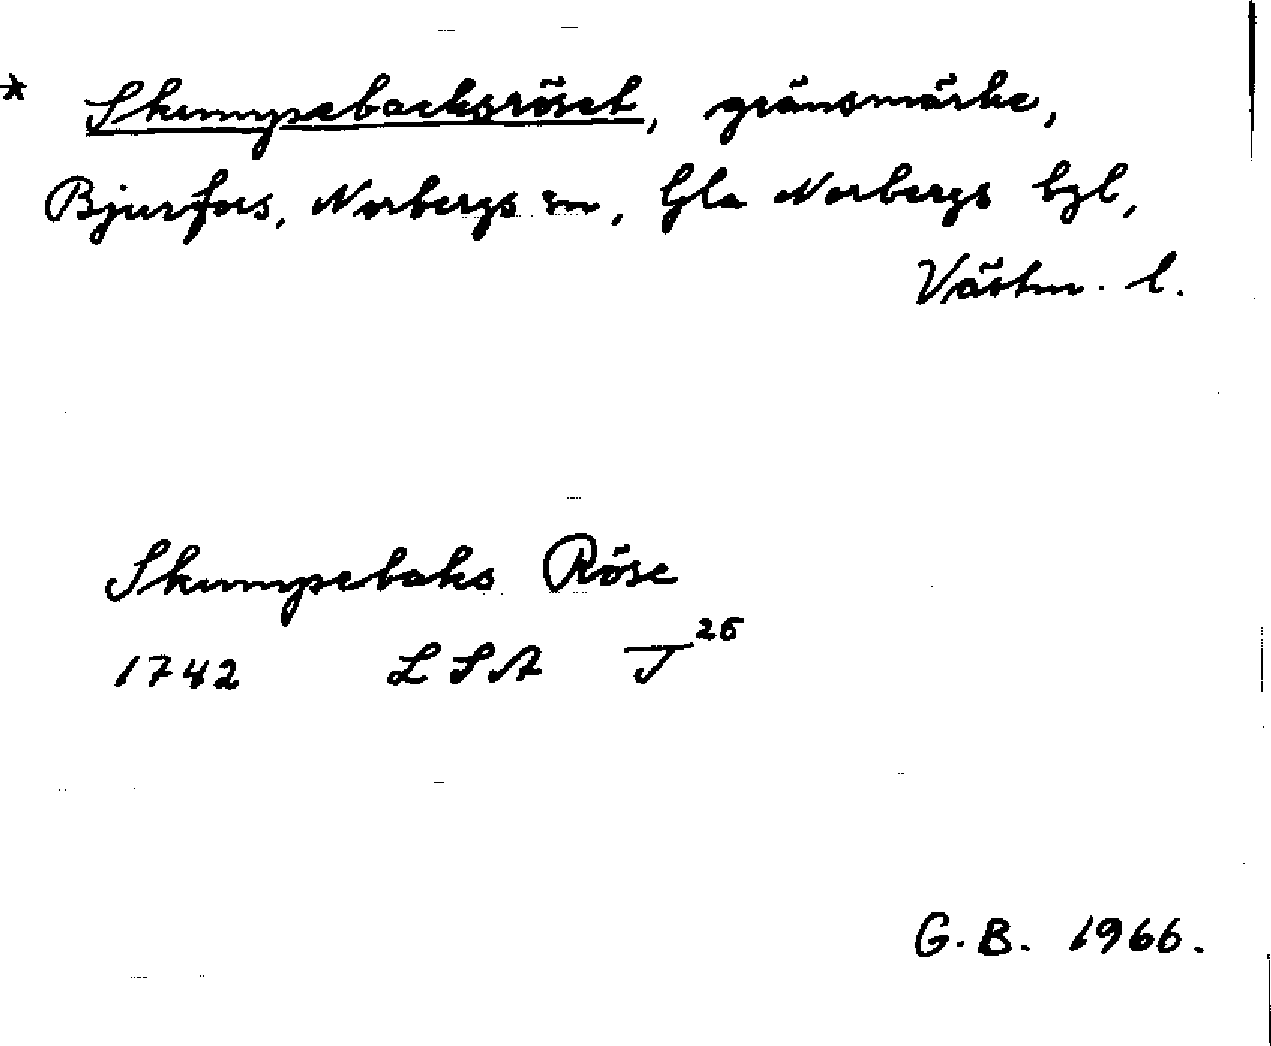 * Skumpebacksröset, gränsmärke,
Bjurfors, Norbergs sn, Gla Norbergs bgl,
Västm. l.
Skumpebaks Röse
1742 LSA J 26
G.B. 1966.